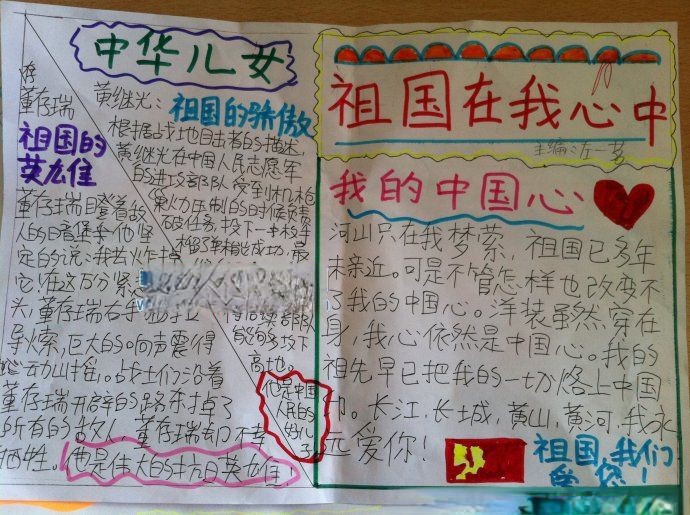 中华儿女
董存瑞
祖国的
英雄
董存瑞瞪着敌
人的暗堡坚
定的说：我去炸掉
它！在这万分紧
头，董存瑞右手
导索，巨大的响声震得
动山摇。战士们沿着
董存瑞开辟的路
所有的敌人，董存瑞却不幸
牺牲。他是伟大的抗日英雄！
黄继光：祖国的骄傲
根据战地目击者的描述，
黄继光在中国人民志愿军
的进攻部队受到机枪
火力压制的时候负责
爆破任务，投下一
部队
攻下
高地。
他是中国
人民的
好儿子
祖国在我心中
主编：左一梦
我的中国心
河山只在我梦萦，祖国已多年
未亲近。可是不管怎样也改变不
了我的中国心。洋装虽然穿在
身，我心依然是中国心。我的
祖先早已把我的一切烙上中国
印。长江，长城，黄山，黄河，我永
远爱你！
祖国，我们
爱您！